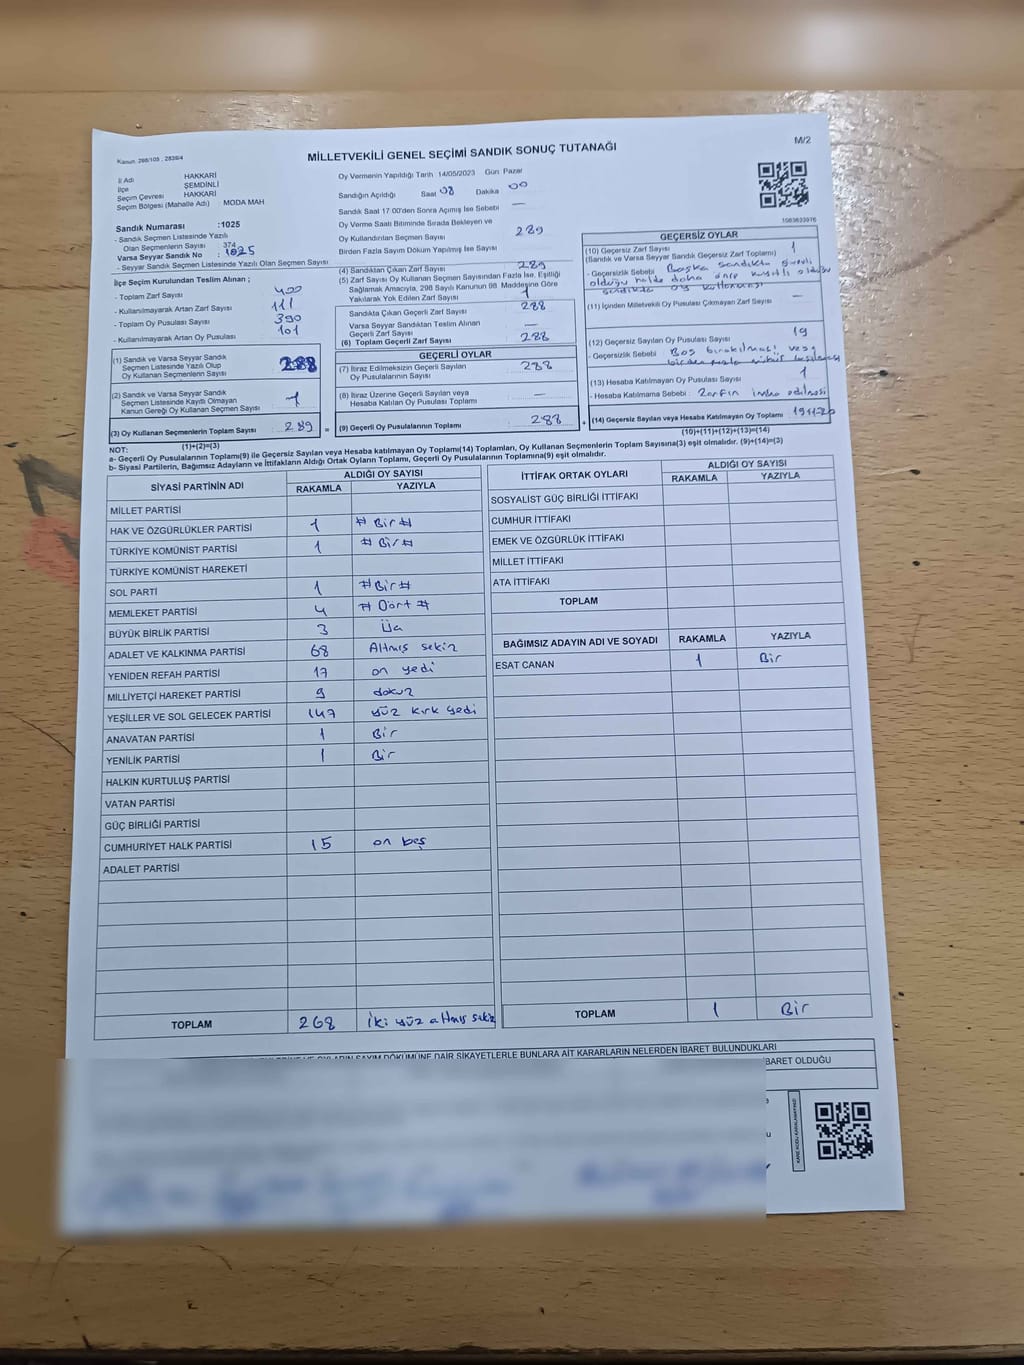 Kanun: 298/105 , 2839/4
M/2
MİLLETVEKİLİ GENEL SEÇİMİ SANDIK SONUÇ TUTANAĞI
İl Adı HAKKARİ
İlçe ŞEMDİNLİ
Seçim Çevresi HAKKARİ
Seçim Bölgesi (Mahalle Adı) : MODA MAH
Sandık Numarası :1025
- Sandık Seçmen Listesinde Yazılı
Olan Seçmenlerin Sayısı : 374
Varsa Seyyar Sandık No : 1025
- Seyyar Sandık Seçmen Listesinde Yazılı Olan Seçmen Sayısı
Oy Vermenin Yapıldığı Tarih 14/05/2023 Gün Pazar
Sandığın Açıldığı Saat 08 Dakika 00
Sandık Saat 17.00'den Sonra Açımış İse Sebebi —
Oy Verme Saati Bitiminde Sırada Bekleyen ve
Oy Kullandırılan Seçmen Sayısı 289
Birden Fazla Sayım Döküm Yapılmış İse Sayısı
1083633976
İlçe Seçim Kurulundan Teslim Alınan ;
- Toplam Zarf Sayısı 400
- Kullanılmayarak Artan Zarf Sayısı 111
- Toplam Oy Pusulası Sayısı 390
- Kullanılmayarak Artan Oy Pusulası 101
(1) Sandık ve Varsa Seyyar Sandık
Seçmen Listesinde Yazılı Olup
Oy Kullanan Seçmenlerin Sayısı 288
(2) Sandık ve Varsa Seyyar Sandık
Seçmen Listesinde Kayıtlı Olmayan
Kanun Gereği Oy Kullanan Seçmen Sayısı 1
(3) Oy Kullanan Seçmenlerin Toplam Sayısı 289 =
(1)+(2)=(3)
(4) Sandıktan Çıkan Zarf Sayısı 289
(5) Zarf Sayısı Oy Kullanan Seçmen Sayısından Fazla İse, Eşitliği
Sağlamak Amacıyla, 298 Sayılı Kanunun 98. Maddesine Göre
Yakılarak Yok Edilen Zarf Sayısı 1
Sandıkta Çıkan Geçerli Zarf Sayısı 288
Varsa Seyyar Sandıktan Teslim Alınan
Geçerli Zarf Sayısı —
(6) Toplam Geçerli Zarf Sayısı 288
GEÇERLİ OYLAR
(7) İtiraz Edilmeksizin Geçerli Sayılan
Oy Pusulalarının Sayısı 288
(8) İtiraz Üzerine Geçerli Sayılan veya
Hesaba Katılan Oy Pusulası Toplamı —
(9) Geçerli Oy Pusulalarının Toplamı 288 +
GEÇERSİZ OYLAR
(10) Geçersiz Zarf Sayısı 1
(Sandık ve Varsa Seyyar Sandık Geçersiz Zarf Toplamı)
- Geçersizlik Sebebi Başka sandıkta görevli
olduğu halde daha önce kayıtlı olduğu
sandıkta oy kullanması
(11) İçinden Milletvekili Oy Pusulası Çıkmayan Zarf Sayısı —
(12) Geçersiz Sayılan Oy Pusulası Sayısı 19
- Geçersizlik Sebebi Boş bırakılması veya
birden fazla
(13) Hesaba Katılmayan Oy Pusulası Sayısı 1
- Hesaba Katılmama Sebebi : Zarfın imha edilmesi
(14) Geçersiz Sayılan veya Hesaba Katılmayan Oy Toplamı
(10)+(11)+(12)+(13)=(14)
NOT:
a- Geçerli Oy Pusulalarının Toplamı(9) ile Geçersiz Sayılan veya Hesaba katılmayan Oy Toplamı(14) Toplamları, Oy Kullanan Seçmenlerin Toplam Sayısına(3) eşit olmalıdır. (9)+(14)=(3)
b- Siyasi Partilerin, Bağımsız Adayların ve İttifakların Aldığı Ortak Oyların Toplamı, Geçerli Oy Pusulalarının Toplamına(9) eşit olmalıdır.
SİYASİ PARTİNİN ADI ALDIĞI OY SAYISI
RAKAMLA YAZIYLA
MİLLET PARTİSİ
HAK VE ÖZGÜRLÜKLER PARTİSİ 1 # Bir #
TÜRKİYE KOMÜNİST PARTİSİ 1 # Bir #
TÜRKİYE KOMÜNİST HAREKETİ
SOL PARTİ 1 # Bir #
MEMLEKET PARTİSİ 4 # Dört #
BÜYÜK BİRLİK PARTİSİ 3 Üç
ADALET VE KALKINMA PARTİSİ 68 Altmış sekiz
YENİDEN REFAH PARTİSİ 17 on yedi
MİLLİYETÇİ HAREKET PARTİSİ 9 dokuz
YEŞİLLER VE SOL GELECEK PARTİSİ 147 yüz kırk yedi
ANAVATAN PARTİSİ 1 Bir
YENİLİK PARTİSİ 1 Bir
HALKIN KURTULUŞ PARTİSİ
VATAN PARTİSİ
GÜÇ BİRLİĞİ PARTİSİ
CUMHURİYET HALK PARTİSİ 15 on beş
ADALET PARTİSİ
TOPLAM 268 İki yüz altmış sekiz
İTTİFAK ORTAK OYLARI ALDIĞI OY SAYISI
RAKAMLA YAZIYLA
SOSYALİST GÜÇ BİRLİĞİ İTTİFAKI
CUMHUR İTTİFAKI
EMEK VE ÖZGÜRLÜK İTTİFAKI
MİLLET İTTİFAKI
ATA İTTİFAKI
TOPLAM
BAĞIMSIZ ADAYIN ADI VE SOYADI RAKAMLA YAZIYLA
ESAT CANAN 1 Bir
TOPLAM 1 Bir
OYLARIN SAYIM DÖKÜMÜNE DAİR ŞİKAYETLERLE BUNLARA AİT KARARLARIN NELERDEN İBARET BULUNDUKLARI
İBARET OLDUĞU